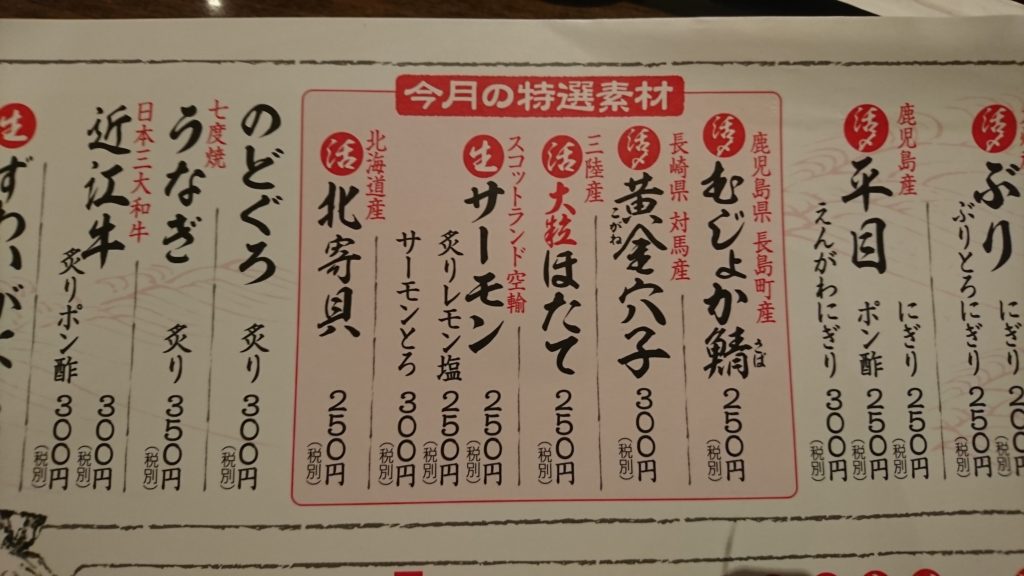 ぶり
にぎり
ぶりとろにぎり 250円
(税別)
鹿児島産
活〆
平目
にぎり 250円
(税別)
ポン酢 250円
(税別)
えんがわにぎり 300円
(税別)
今月の特選素材
鹿児島県 長島町産
活〆
むじょか鯖 250円
さば
(税別)
長崎県 対馬産
活〆
黄金穴子 300円
こがね
(税別)
三陸産
活
大粒ほたて 250円
(税別)
スコットランド空輸
生
サーモン 250円
(税別)
炙りレモン塩 250円
(税別)
サーモンとろ 300円
(税別)
北海道産
活
北寄貝 250円
(税別)
のどぐろ 炙り 300円
(税別)
七度焼
うなぎ 炙り 350円
(税別)
日本三大和牛
近江牛 300円
(税別)
炙りポン酢 300円
(税別)
生